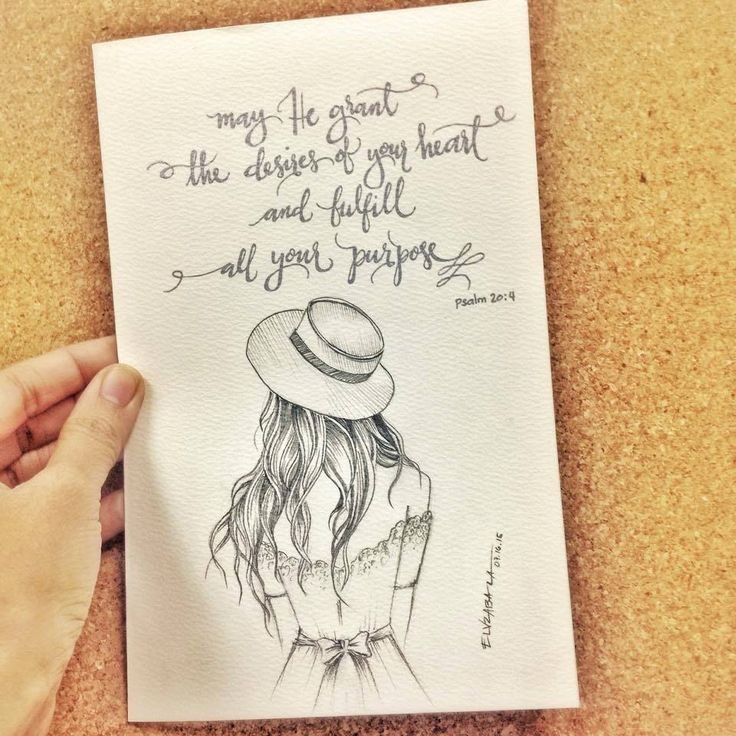 may He grant
the desires of your heart
and fulfill
all your purpose
psalm 20:4